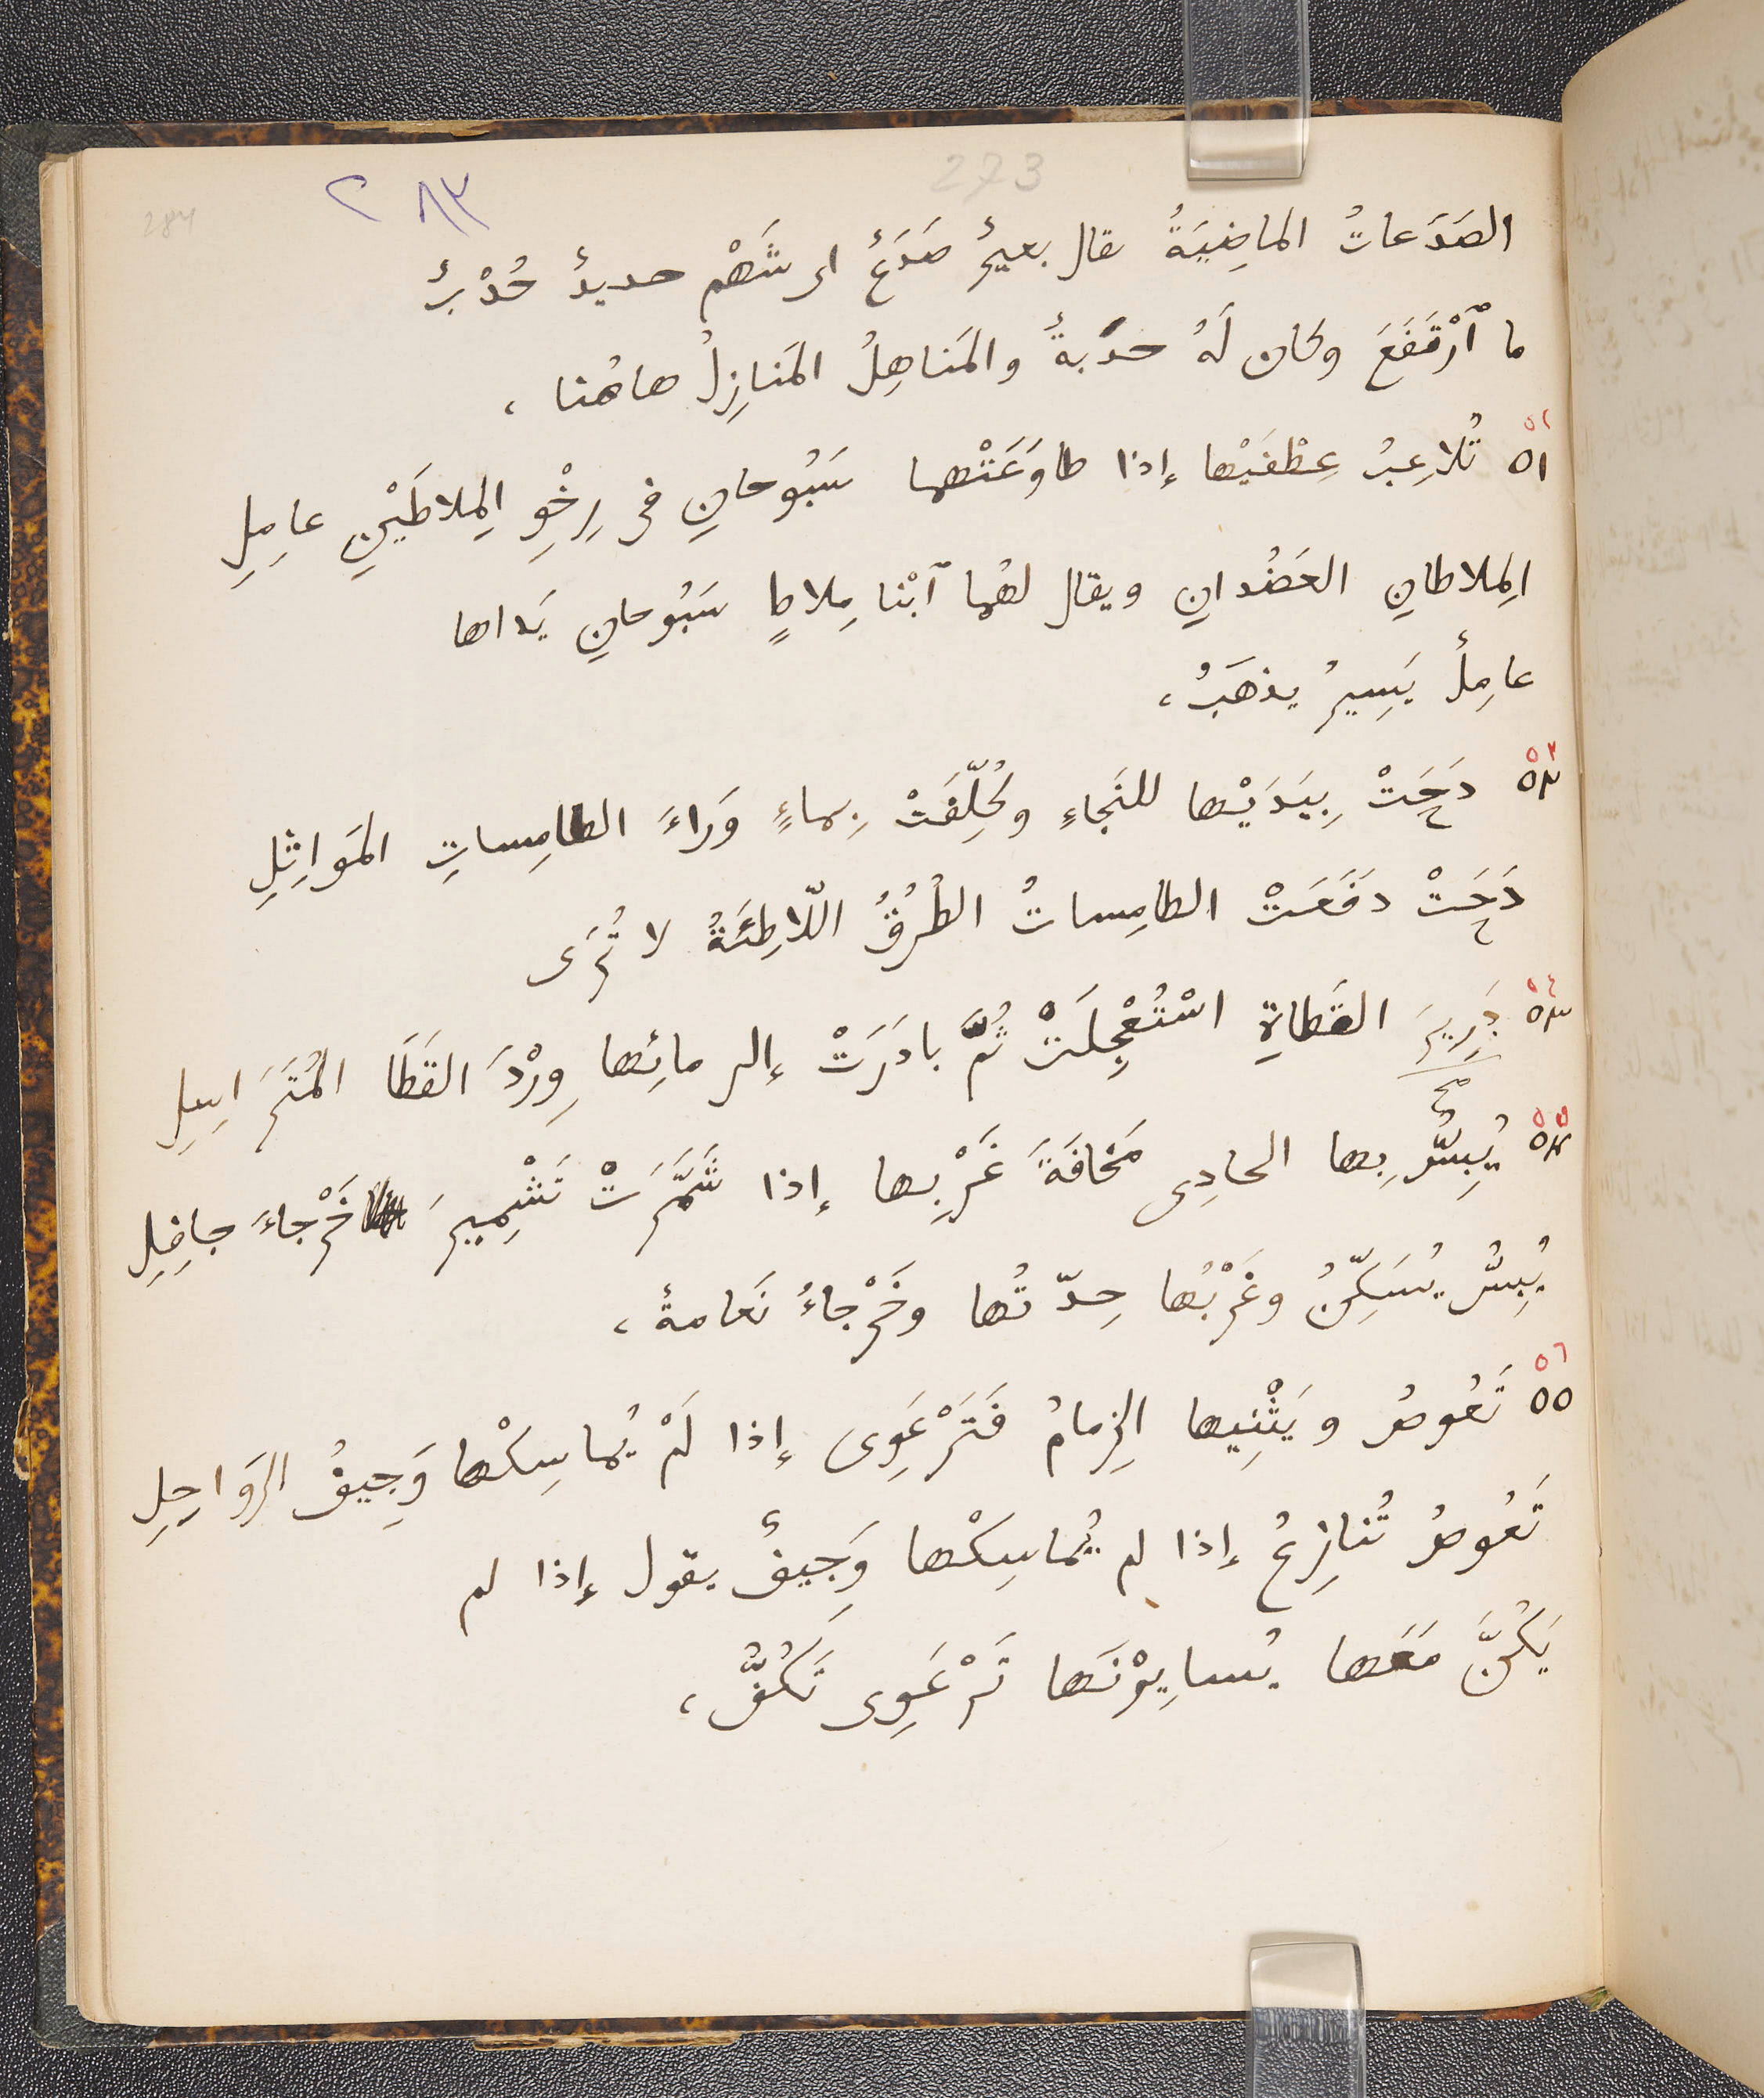 273
٢٨٣
284
الصَدَعاتُ الماضِيَةُ يقال بعيرٌ صَدَعٌ اى شَهْم حديدٌ حُدْبٌ
ما ٱرْتَفَعَ وكان لَهُ حدَبةٌ والمَناهِلُ المَنازِلُ هاهُنا ،
٥٢
٥١ تُلاعِبُ عِطْفَيْها إذا طاوَعَتْهما سَبُوحانِ فى رِخْوِ المِلاطَيْنِ عامِلِ
المِلاطانِ العَضُدانِ ويقال لهُما ٱبْنا مِلاطٍ سَبُوحانِ يَداها
عامِلٌ يَسِيرُ يذهَبُ ،
٥٣
٥٢ دَحَتْ بِيَدَيْها للنَجاءِ وكُلِّفَتْ بِماءٍ وَراءَ الطامِساتِ المَواثِلِ
دَحَتْ دفَعَتْ الطامِساتُ الطُرُقُ اللّاطِئَةُ لا تُرَى
٥٤
٥٣ القَطاةِ اسْتُعْجِلَتْ ثُمَّ بادَرَتْ إلى مائِها وِرْدَ القَطَا المُتَرَاسِلِ
٥٥
٥٤ يُبِسُّ بِها الحادِى مَخافَةَ غَرْبِها إذا شَمَّرَتْ تَشْمِيرَ خَرْجاءَ جافِلِ
يُبِسُّ يُسَكِّنُ وغَرْبُها حِدّتُها وخَرْجاءُ نَعامةٌ ،
٥٦
٥٥ تَعُوصُ ويَثْنِيها الزِمامُ فَتَرْعَوِى إذا لَمْ يُماسِكْها وَجِيفُ الرَوَاحِلِ
تَعُوصُ تُنازِعُ إذا لم يُماسِكْها وَجِيفٌ يقول إذا لم
يَكُنَّ مَعَها يُسايِرْنَها تَرْعَوِى تَكُفُّ ،